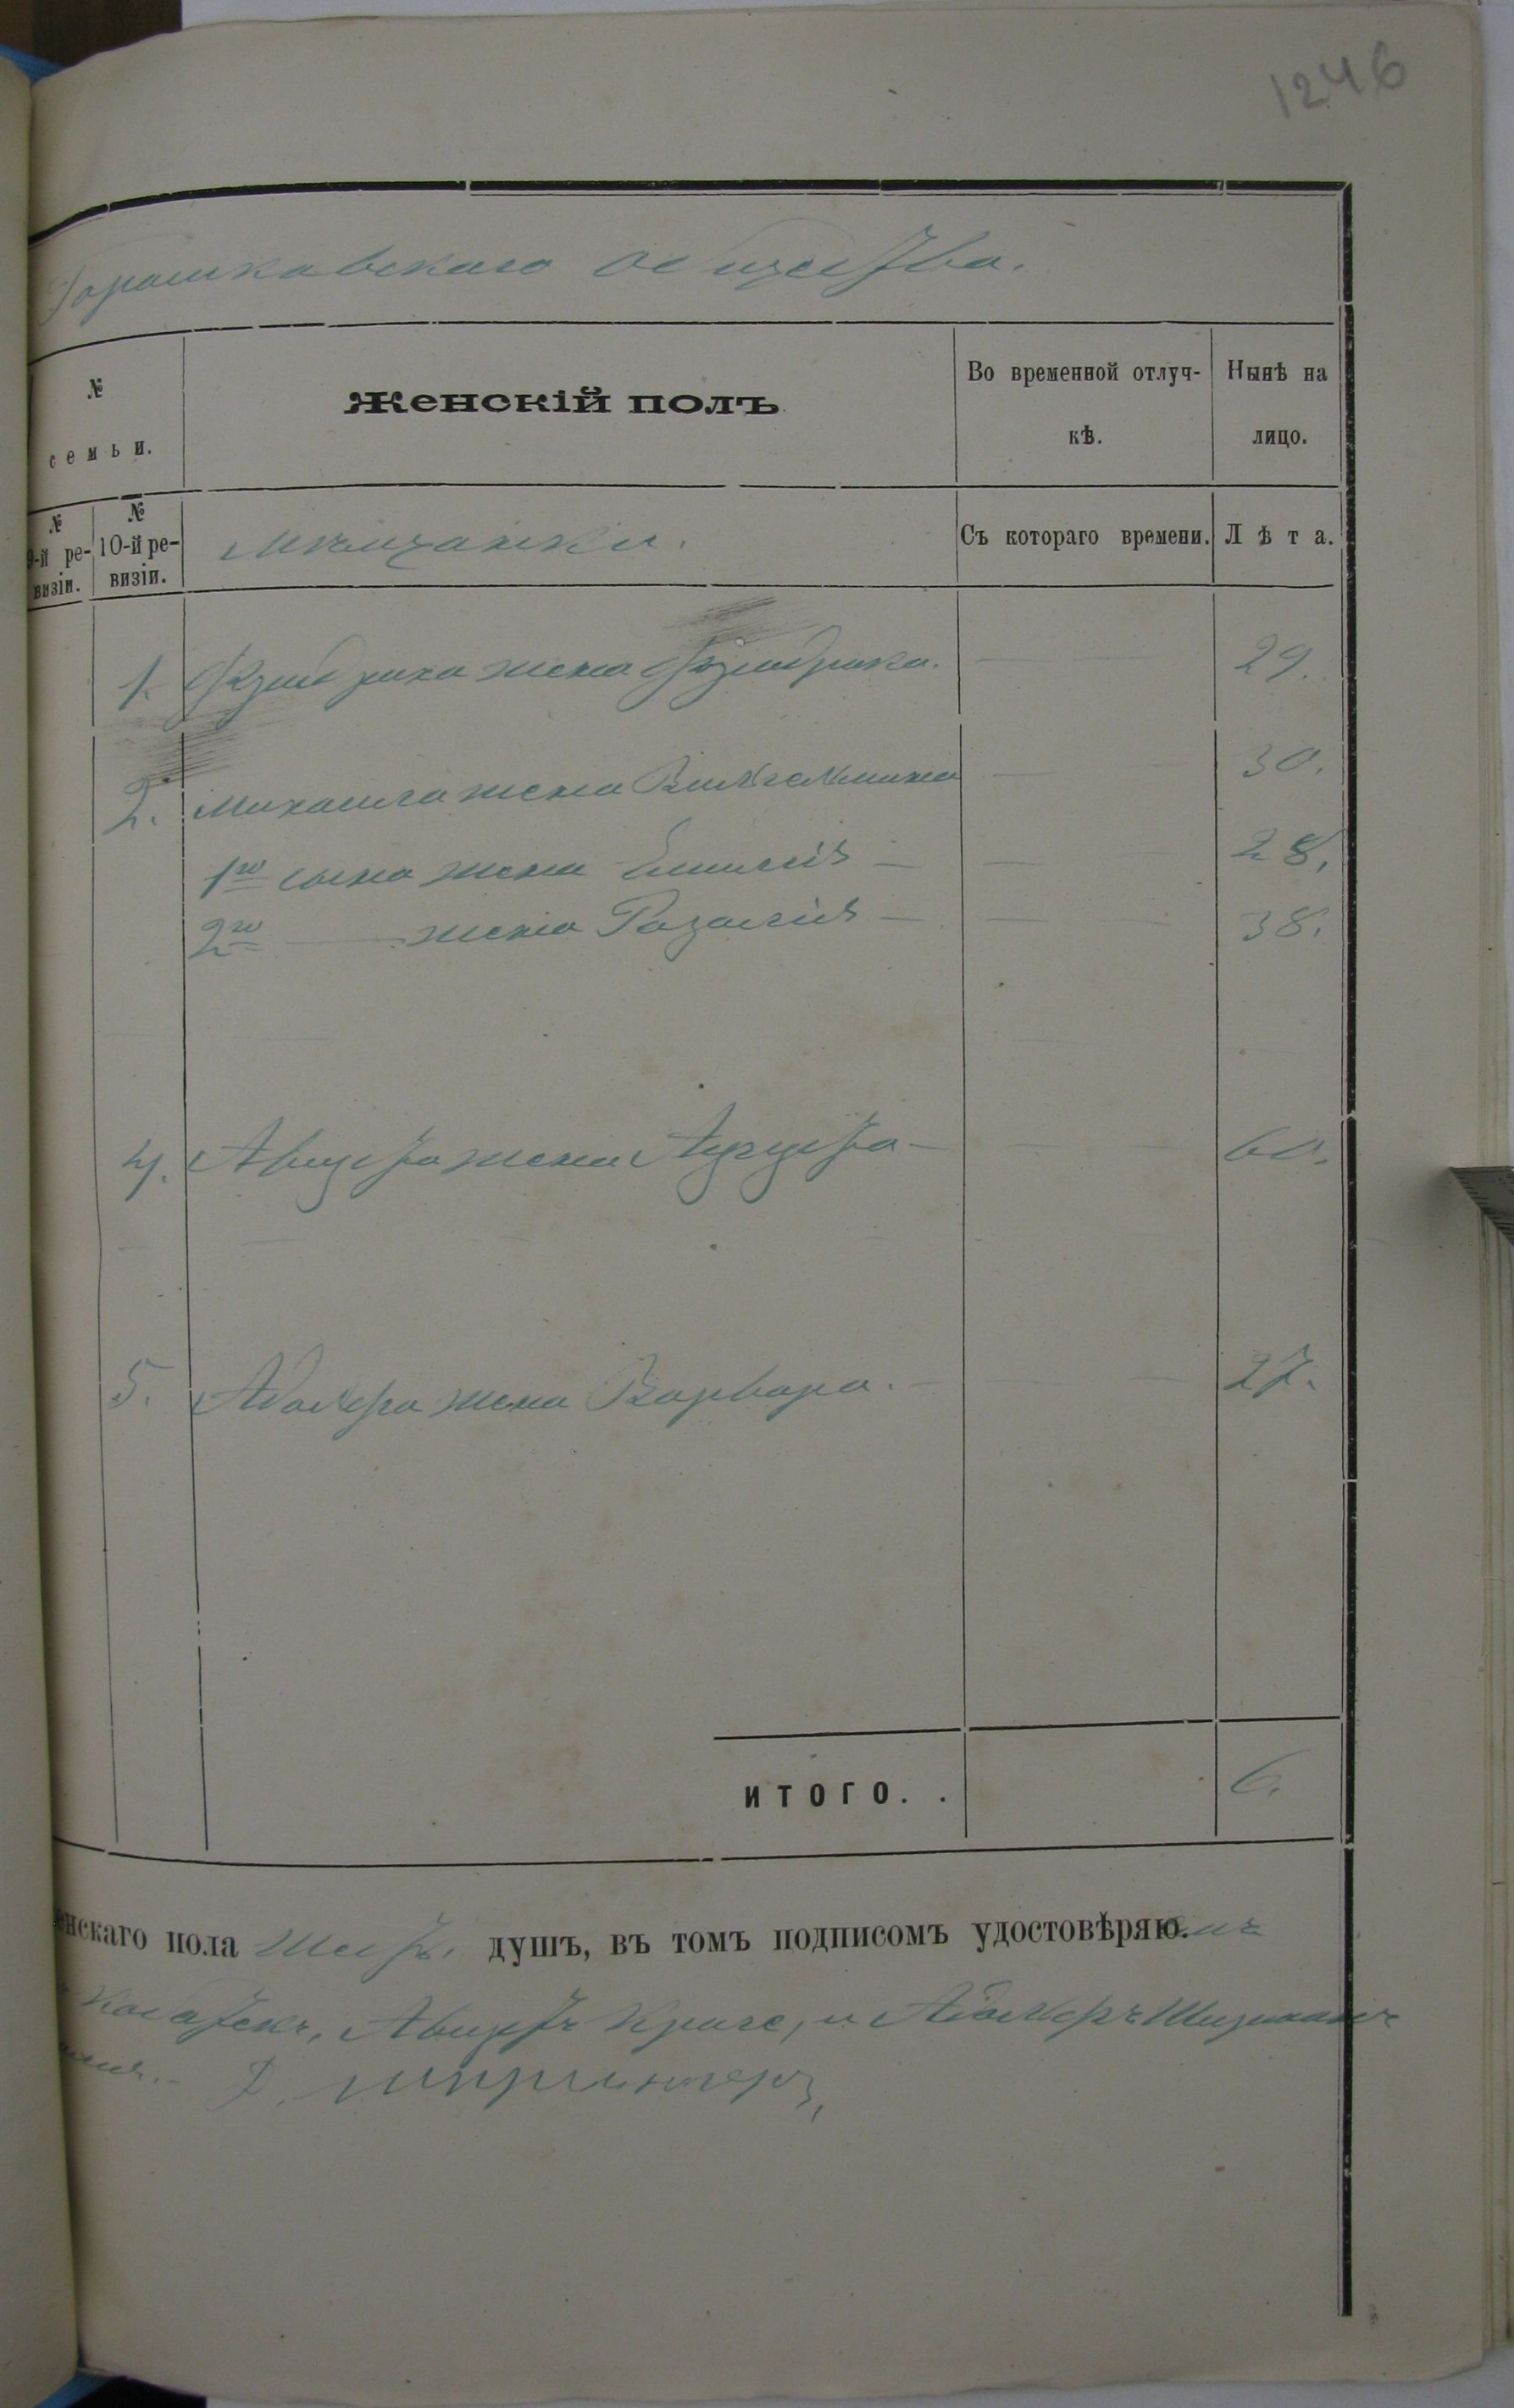 1246
Горошковскаго общества.
№ семьи.
Женскій полъ
Во временной отлуч-
кѣ.
Нынѣ на
лицо.
№ 9-й ре-
визіи.
№ 10-й ре-
визіи.
Мѣщанки.
Съ котораго времени.
Лѣта.
1. Фридриха жена Фридрика. 29.
2. Михаила жена Вильгельмина 30.
1го сына жена Емилія — 28.
2го — жена Розалія — 38.
4. Августа жена Августа — 60.
5. Адольфа жена Варвара. 27.
ИТОГО. . 6.
енскаго пола Шесть. душъ, въ томъ подписомъ удостовѣряю.
Августъ Краге, и Адольфъ